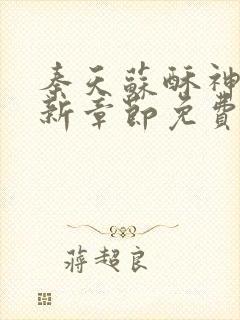 秦天蘇酥神
新章節免費
蔣超良